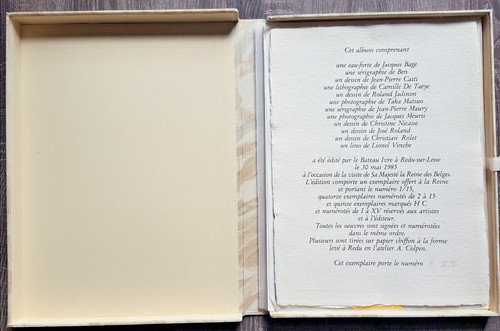 Cet album comprenant
une eau-forte de Jacques Bage
une sérigraphie de Ben
un dessin de Jean-Pierre Caits
une lithographie de Camille De Taeye
un dessin de Roland Jadinon
une photographie de Taka Matsuo
une sérigraphie de Jean-Pierre Maury
une photographie de Jacques Meuris
un dessin de Christine Nicaise
un dessin de José Roland
un dessin de Christian Rolet
un lino de Lionel Vinche
a été édité par le Bateau Ivre à Redu-sur-Lesse
le 30 mai 1985
à l'occasion de la visite de Sa Majesté la Reine des Belges.
L'édition comporte un exemplaire offert à la Reine
et portant le numéro 1/15,
quatorze exemplaires numérotés de 2 à 15
et quinze exemplaires marqués H C
et numérotés de I à XV réservés aux artistes
et à l'éditeur.
Toutes les oeuvres sont signées et numérotées
dans le même ordre.
Plusieurs sont tirées sur papier chiffon à la forme
levé à Redu en l'atelier A. Colpin.
Cet exemplaire porte le numéro